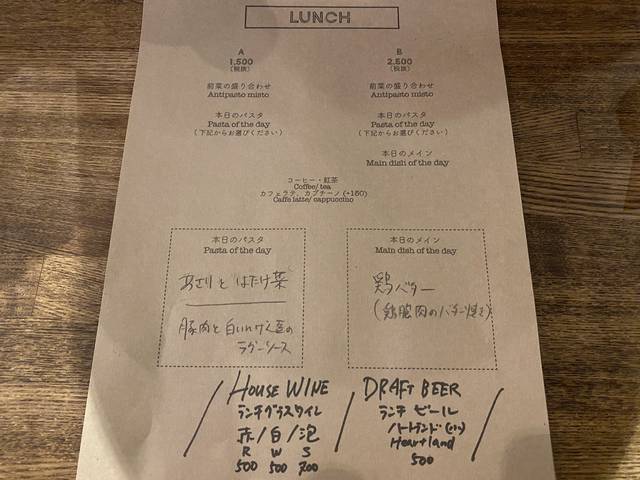 LUNCH
A
1,500
(税抜)
前菜の盛り合わせ
Antipasto misto
本日のパスタ
Pasta of the day
(下記からお選びください)
B
2,500
(税抜)
前菜の盛り合わせ
Antipasto misto
本日のパスタ
Pasta of the day
(下記からお選びください)
本日のメイン
Main dish of the day
コーヒー・紅茶
Coffee/ tea
カフェラテ、カプチーノ (+150)
Caffe latte/ cappuccino
本日のパスタ
Pasta of the day
あさりと はたけ菜
豚肉と白いんげん豆の
ラグーソース
本日のメイン
Main dish of the day
鶏バター
(鶏胸肉のバター焼き)
HOUSE WINE
ランチグラスワイン
赤/白/泡
R W S
500 500 700
DRAFT BEER
ランチ ビール
ハートランド(小)
Heartland
500